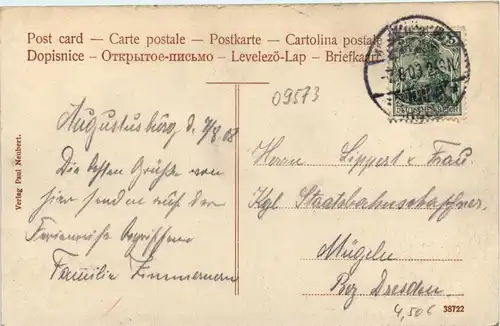 Post card – Carte postale – Postkarte – Cartolina postale
Dopisnice – Открытое-письмо – Levelező-Lap – Briefkaart
09573
Augustusburg d. 7/8 08
Die besten Grüße von
hier senden auf der
Ferienreise begriffen
Familie Zimmermann
Herrn Lippert u. Frau
Kgl. Staatsbahnschaffner.
Mügeln
Bez Dresden.
Verlag Paul Neubert.
38722
4,50€